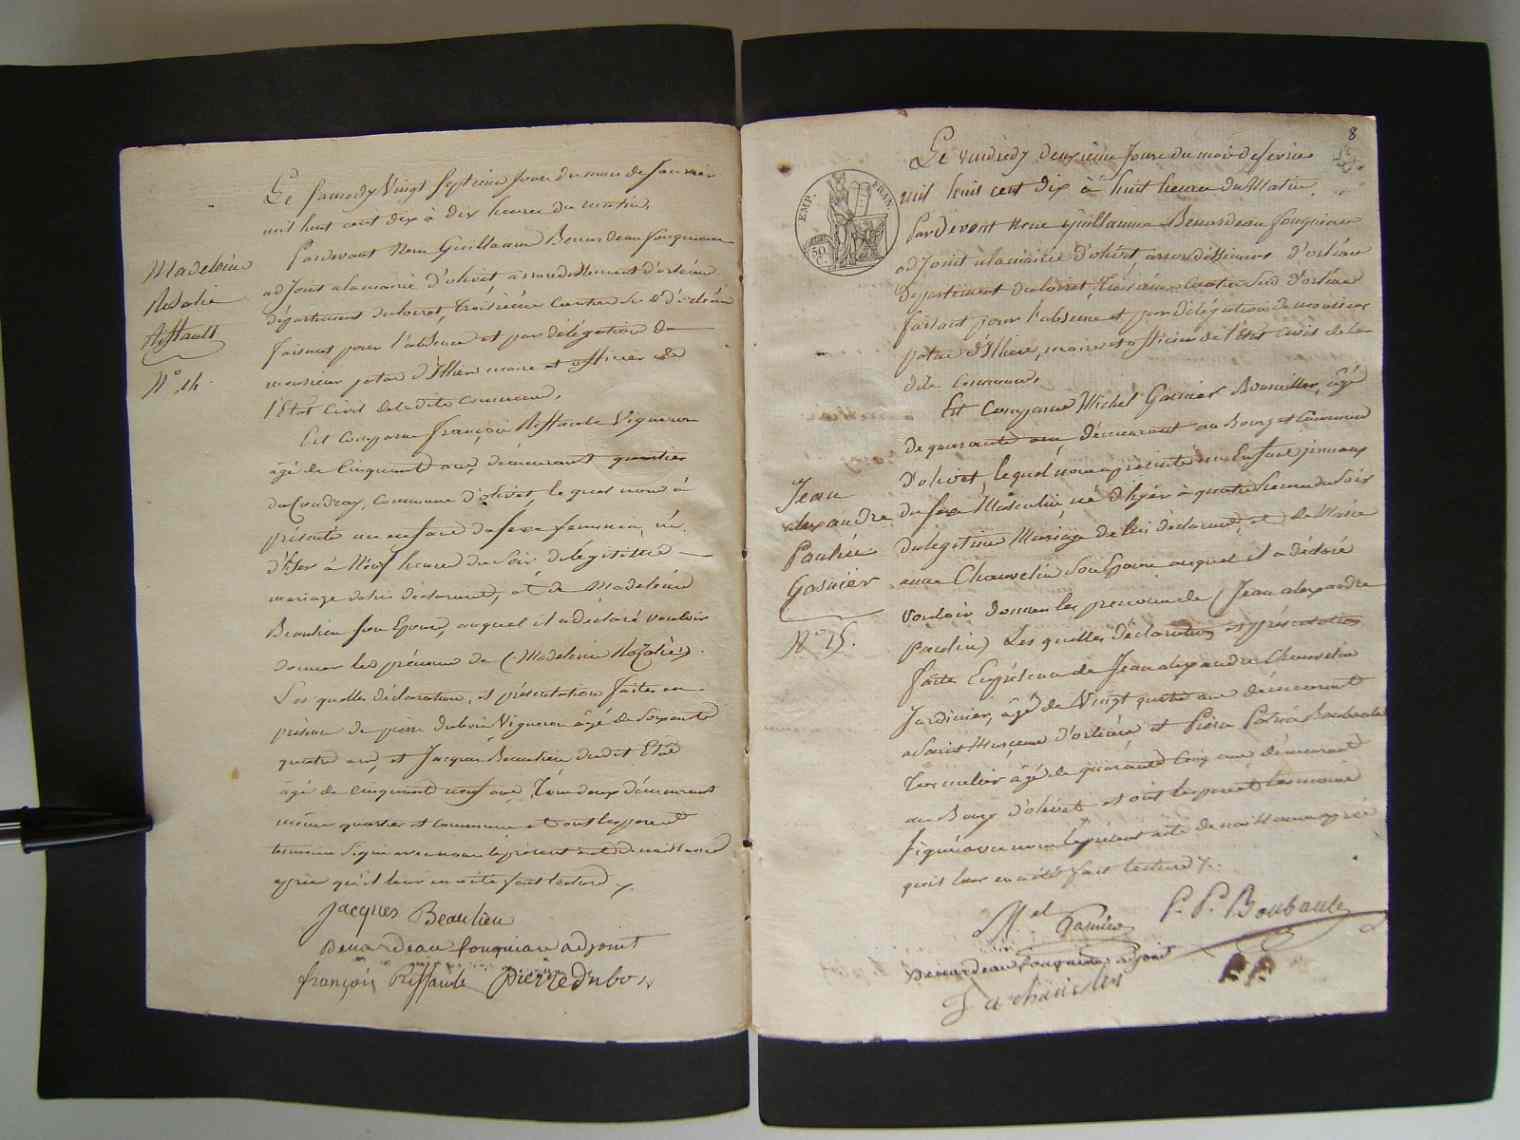 Le samedy vingt septième jour du mois de janvier
mil huit cent dix à dix heures du matin,
Pardevant nous Guillaume Benardeau fouqueau
adjoint à la mairie d'olivet arrondissement d'orléans
département du loiret, troisième canton Sud d'orléans
faisant pour l'absence et par délégation de
monsieur maire et officier de
l'Etat Civil de ladite commune,
Madeleine
Rosalie
Riffault
N° 14.
Est Comparu françois Riffault Vigneron
âgé de Cinquante ans, demeurant quartier
du Coudray, commune d'olivet lequel nous à
présenté un enfant du sexe feminin, né
d'hyer à Neuf heures du soir du légitime
mariage de lui déclarant, et de Madeleine
Beaulieu son Epouse, auquel il a déclaré vouloir
donner les prénoms de (Madeleine Rozalie).
Les quelles déclaration, et présentation faites en
présence de pierre dubois Vigneron âgé de soixante
quatre ans, et Jacques Beaulieu dudit Etat
âgé de cinquante neuf ans, tous deux demeurant
même quartier et commune et ont les pere et
témoins signé avec nous le présent acte de naissance
après qu'il leur en a été fait lecture
Jacques Beaulieu
Benardeau fouquiau adjoint
françois Riffault pierre dubois
8
EMP. FRAN.
50 C.
Le vendredy deuxième Jour du mois de fevrier
mil huit cent dix à huit heures du Matin.
Pardevant nous Guillaume Benardeau fouquiau
adjoint à la mairie d'olivet, arrondissement d'orléans
Département du loiret, troisième canton Sud d'orléans
faisant pour l'absence et par délégation de monsieur
maire et officier de l'état civil de la
dite commune,
Est Comparu Michel Gasnier âgé
de quarante ans demeurant au Bourg et Commune
d'olivet, lequel nous a présenté un Enfant
Jean
alexandre
Paulin
Gasnier
N° 15.
du sexe Masculin, né d'hyer à quatre heures du soir
du légitime Mariage de lui déclarant, et de Marie
anne Chauvelin son Epouse auquel il a déclaré
vouloir donner les prenoms de (Jean alexandre
paulin) Les quelles déclaration et présentation
faite En présence de Jean alexandre Chauvelin
Jardinier, âgé de Vingt quatre ans demeurant
a Saint Marceau d'orléans et Pierre Boubault
Tonnelier âgé de quarante Cinq ans demeurant
au Bourg d'olivet et ont les pere et témoins
signé avec nous le présent acte de naissance après
qu'il leur en a été fait lecture
Mel Gasnier P. P. Boubault
Benardeau fouquiau adjoint
J a chauvelin